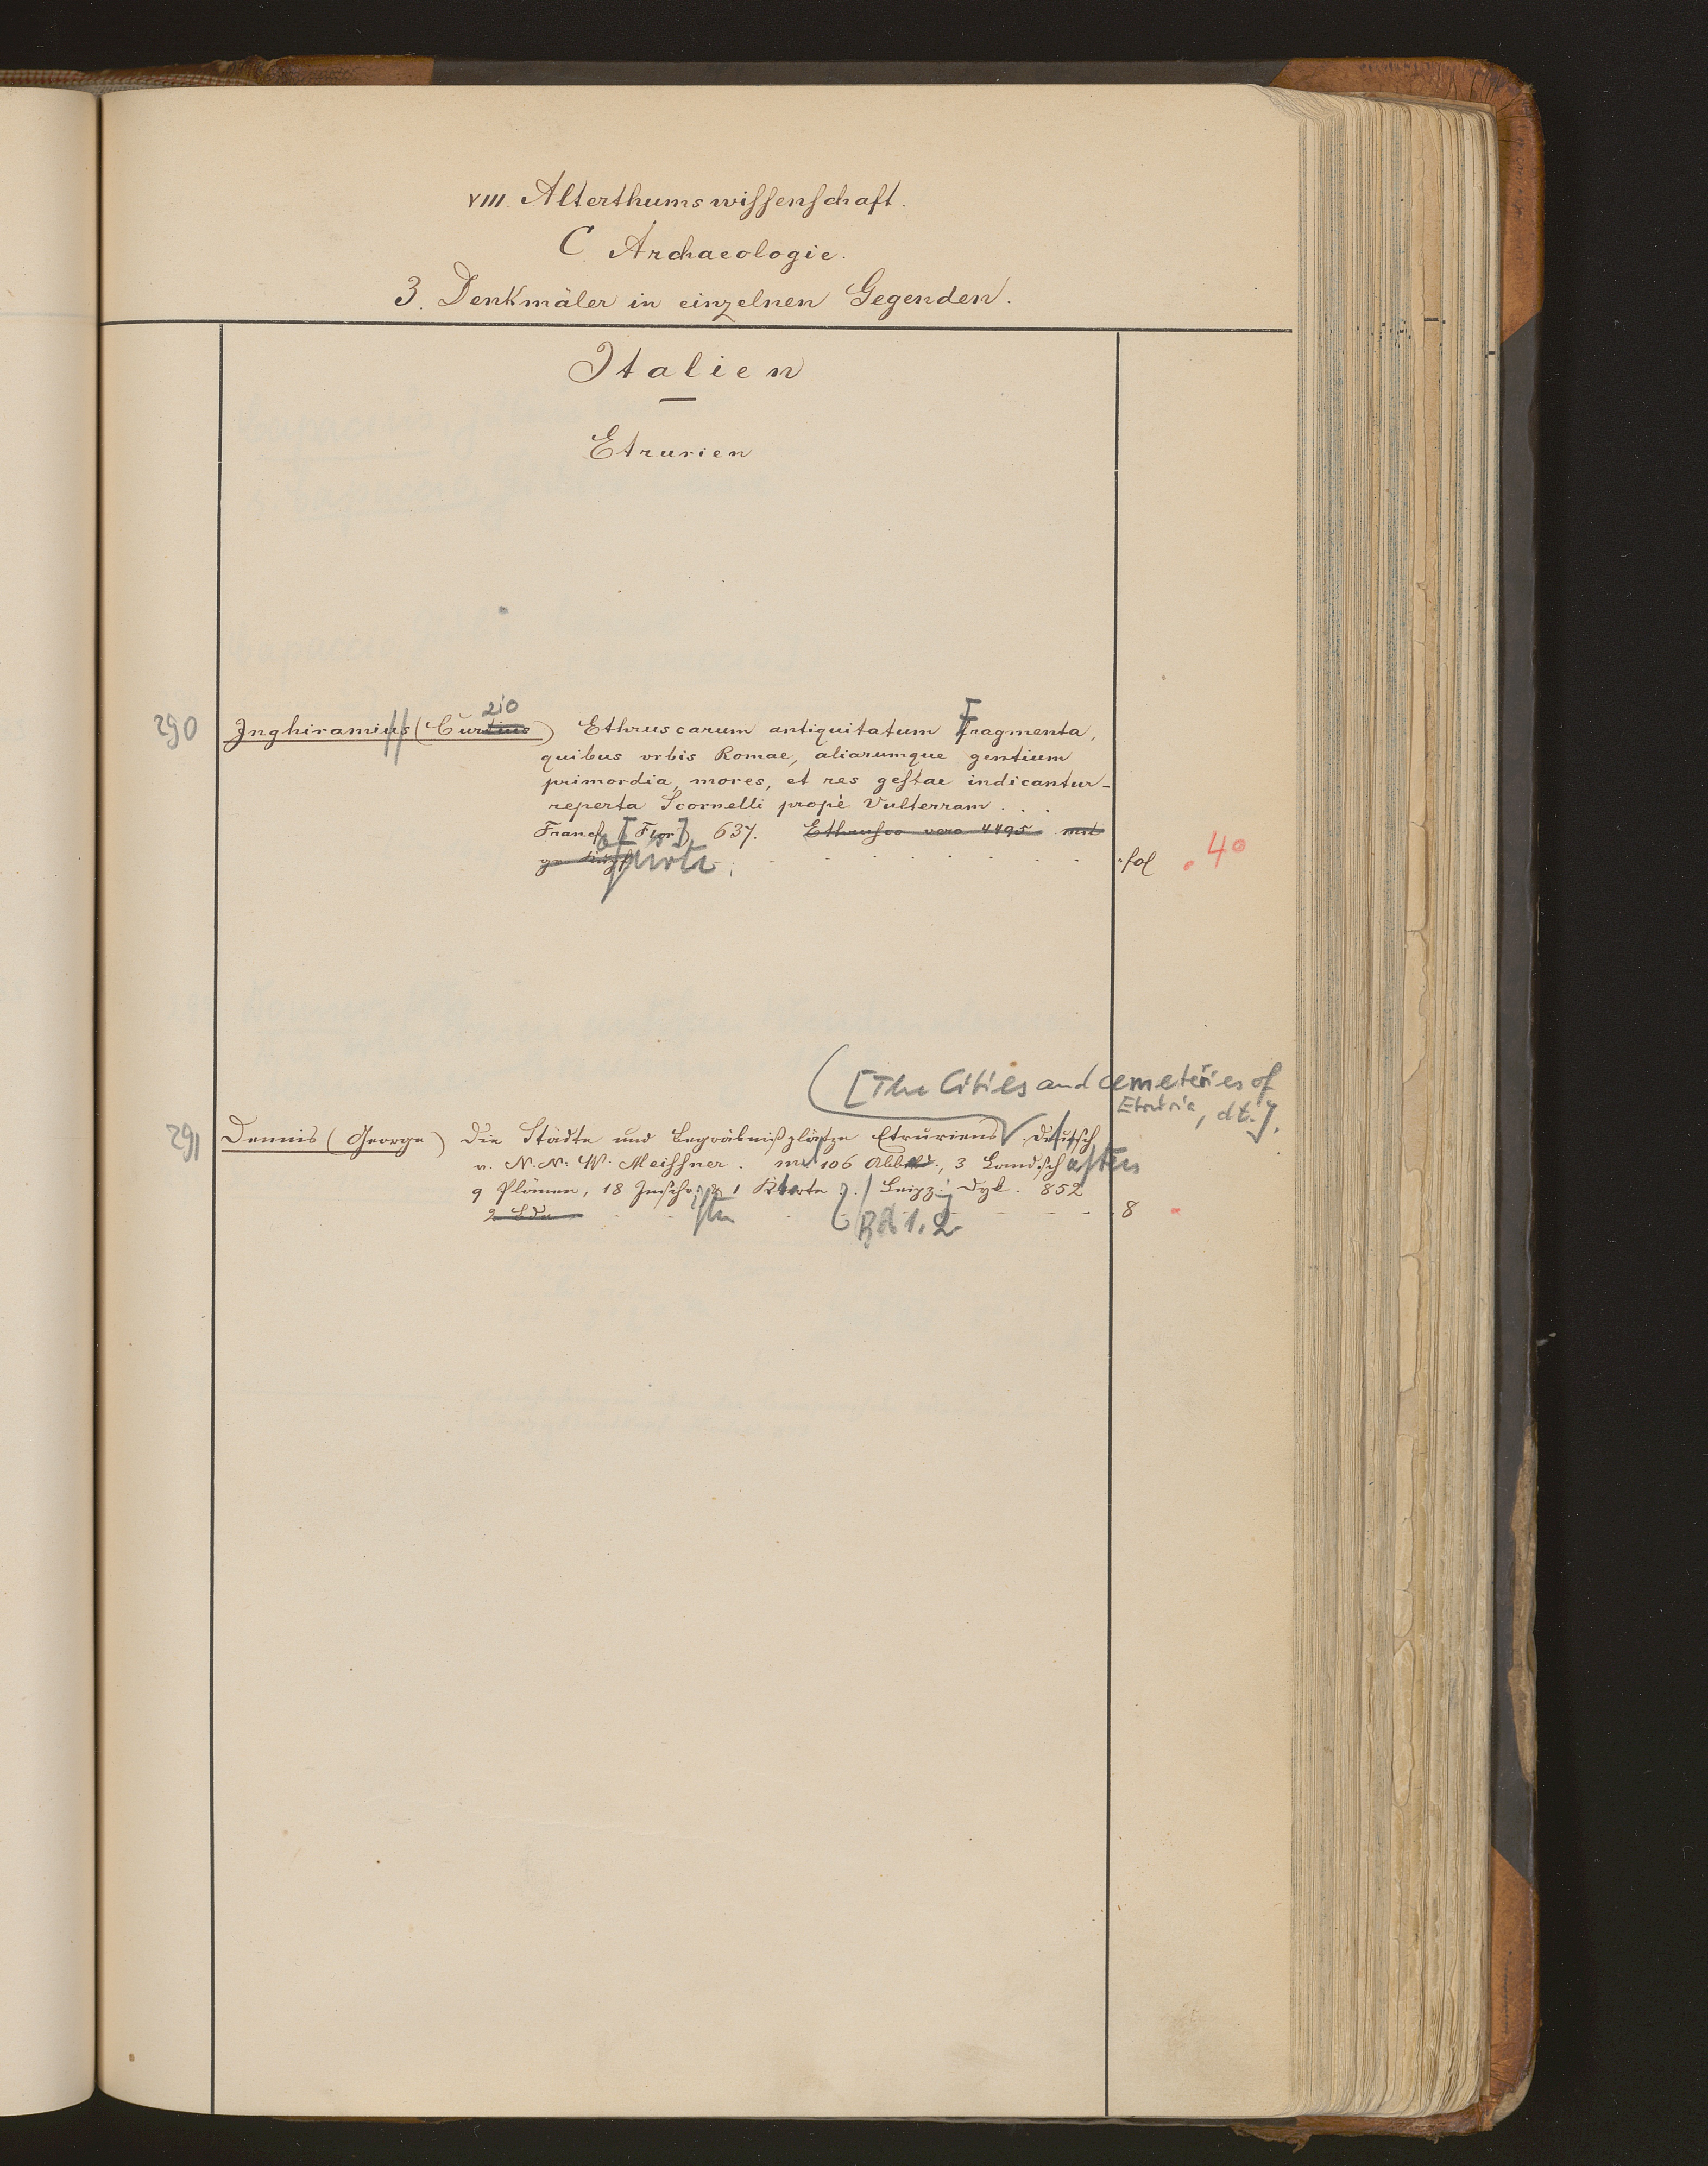 VIII. Alterthumswissenschaft.
C. Archaeologie.
3. Denkmäler in einzelnen Gegenden.
Italien
Etrurien
zio
290 Inghiramius (Curtius) Ethruscarum antiquitatum Fragmenta,
quibus orbis Romae, aliarumque gentium
primordia, mores, et res gestae indicantur
reperta Scornelli propè Vulterram . . .
Francof [Flor.] 637. Ethrusco vero 4495 mit
fol . 40
[The Cities and cemeteries of
Etruria, dt.].
291 Dennis (George) Die Städte und Begräbnißplätze Etruriens Deutsch
v. N. N. W. Meissner. mit 106 Abbild., 3 Landschaften
9 Plänen, 18 Inschr. 1 Karte. Leipzig Dyk. 852
2 Bde Bd 1. 2. 8